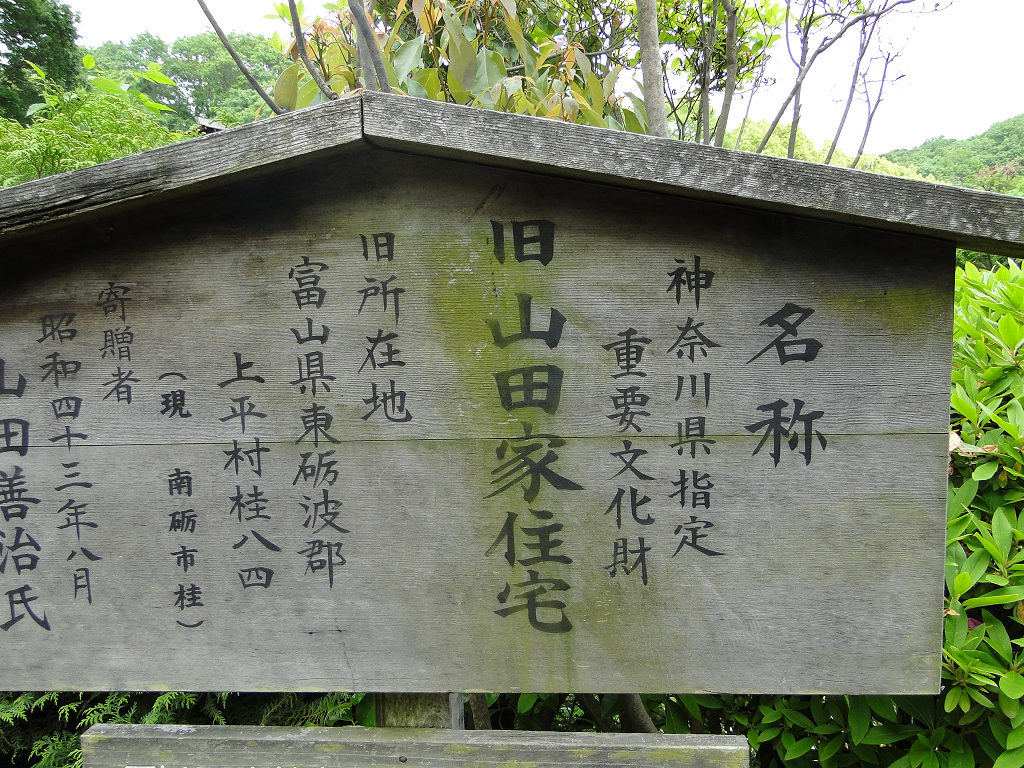 名称
神奈川県指定
重要文化財
旧山田家住宅
旧所在地
富山県東砺波郡
上平村桂八四
（現 南砺市桂）
寄贈者
昭和四十三年八月
山田善治氏